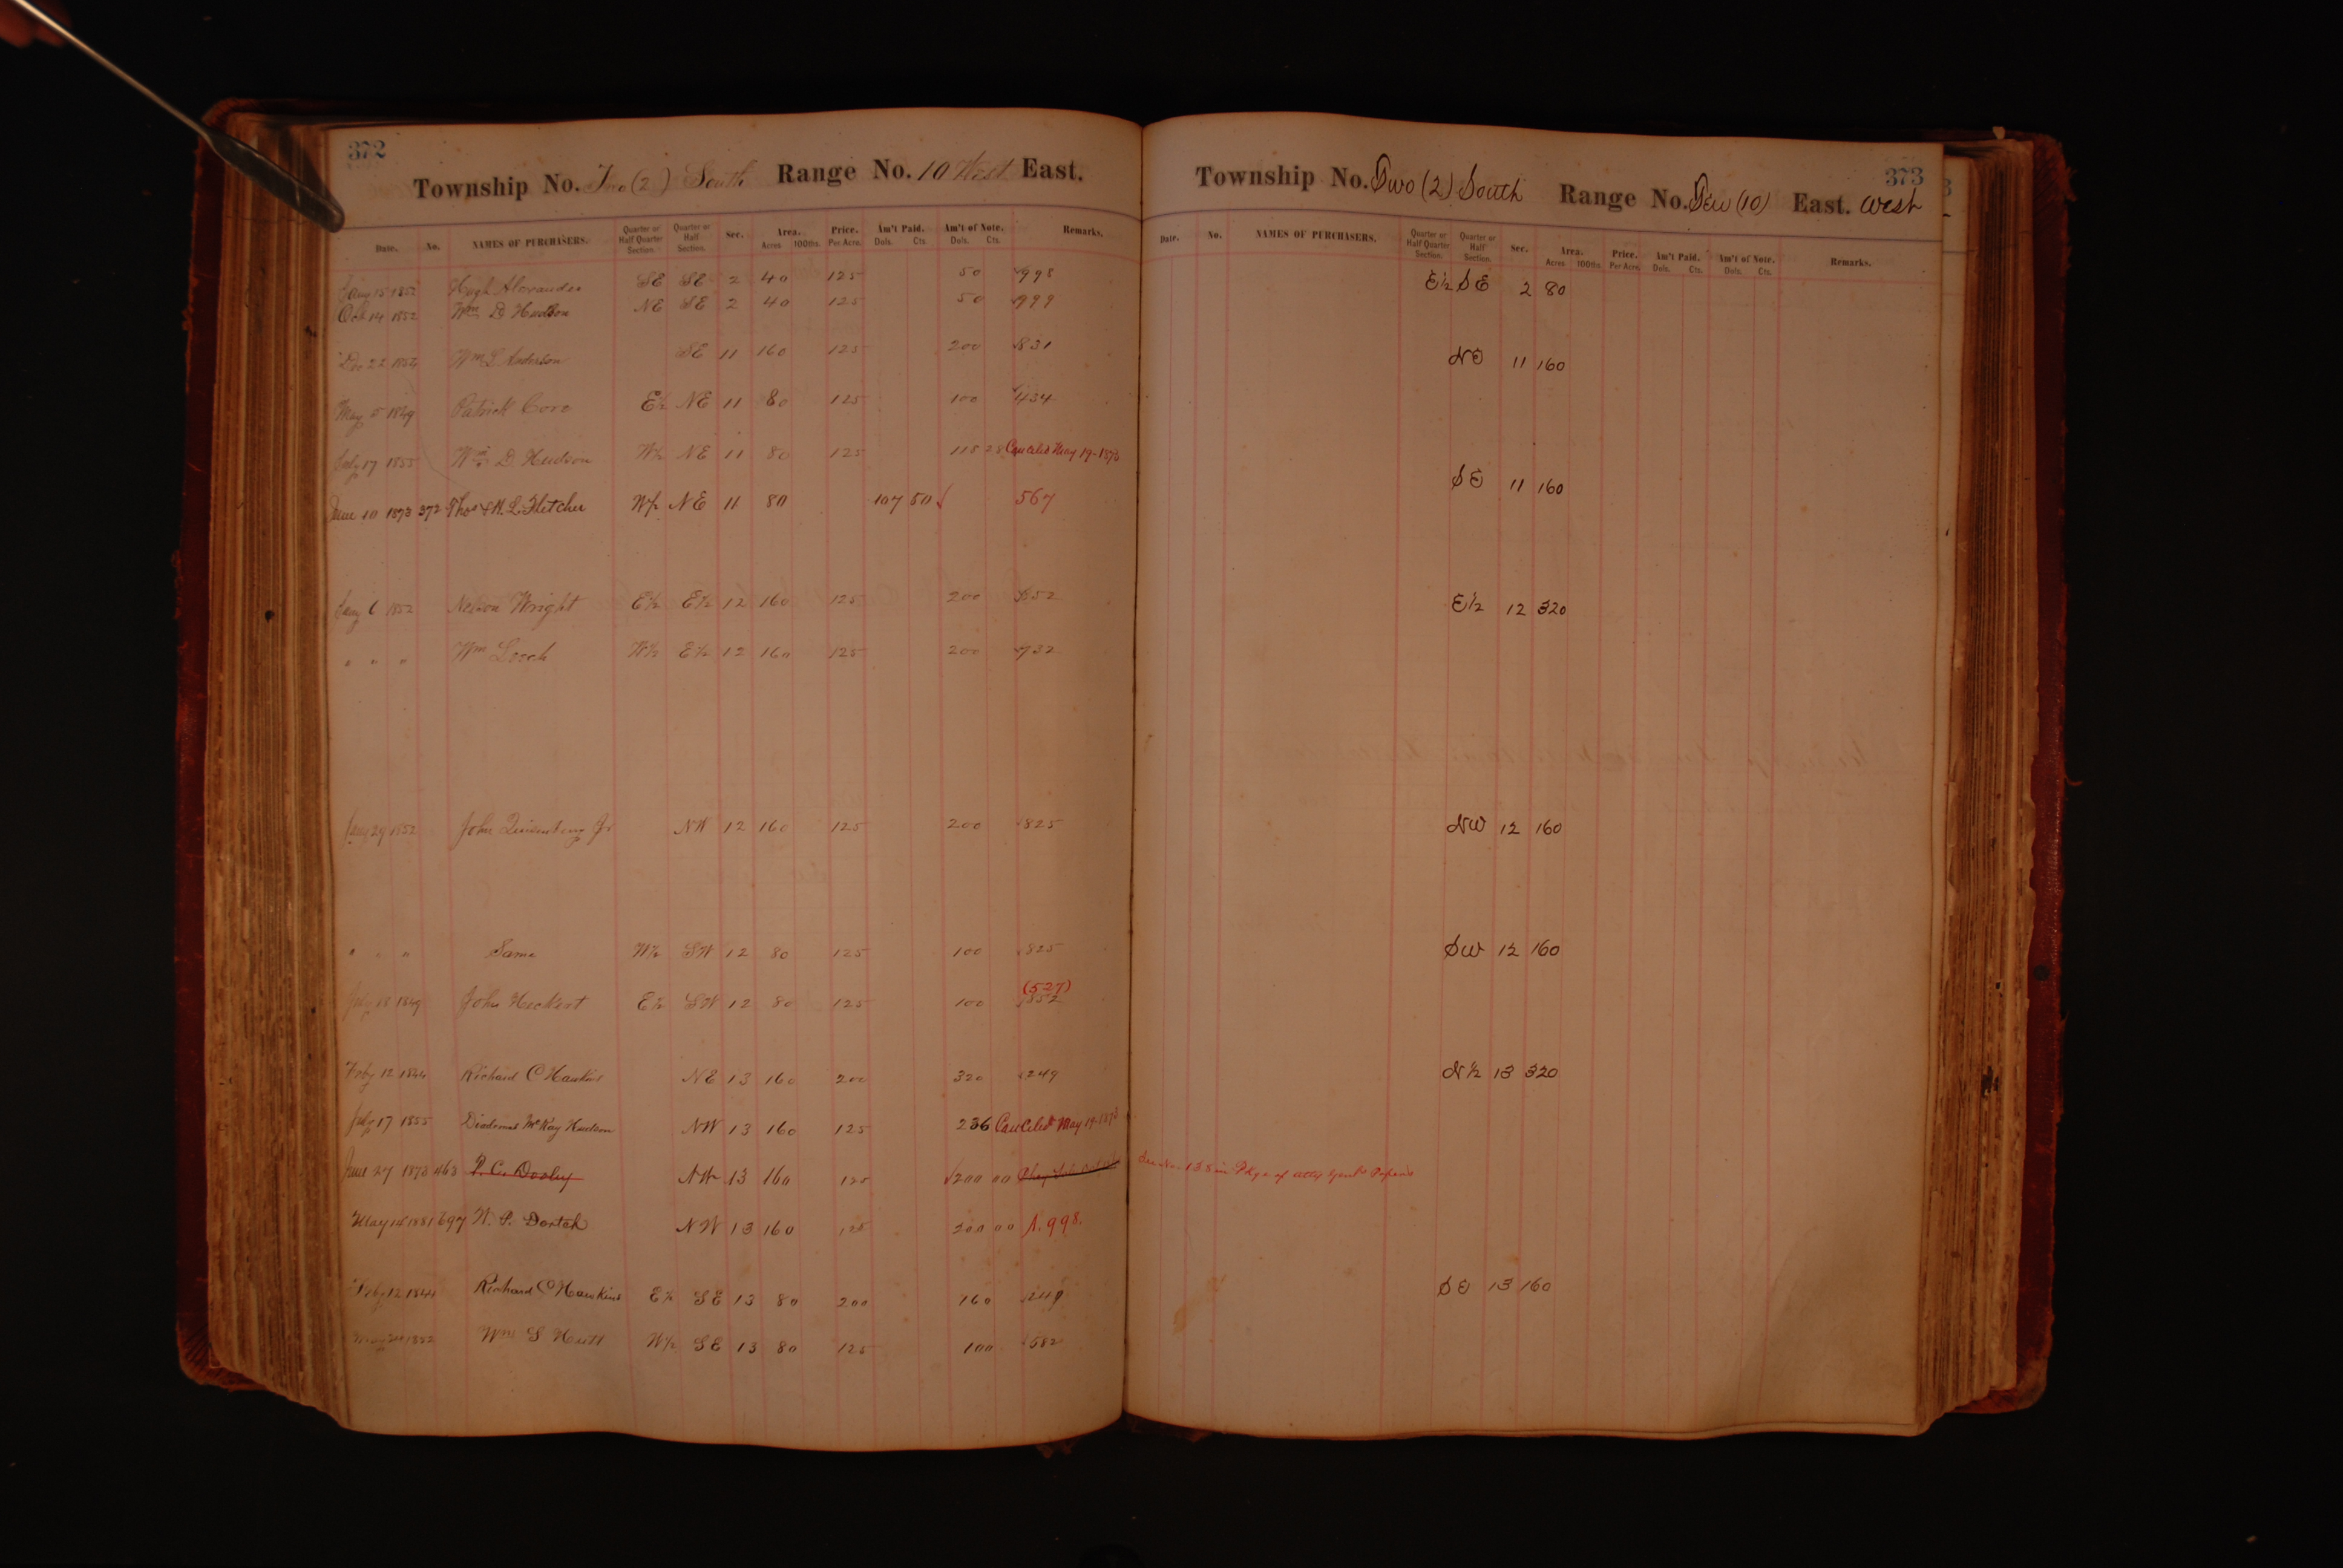 372
Township No. Two (2) South Range No. 10 West East.
Date. No. NAMES OF PURCHASERS. Quarter or Half Quarter Section. Quarter or Half Section. Sec. Area. Acres 100ths. Price. Per Acre. Am't Paid. Dols. Cts. Am't of Note. Dols. Cts. Remarks.
Jany 15 1852 Hugh Alexander SE SE 2 40 125 50 998
Oct 14 1852 Wm D Hudson NE SE 2 40 125 50 999
Dec 22 Wm L Anderson SE 11 160 125 200 831
May 5 1849 Patrick Core E½ NE 11 80 125 100 434
July 17 1855 Wm D. Hudson W½ NE 11 80 125 118 28 Canceled May 19-1873
June 10 1873 372 Thos & W. L. Fletcher W½ NE 11 80 107 50 567
Jany 6 1852 Nelson Wright E½ E½ 12 160 125 200
" " " Wm W½ E½ 12 160 125 200 732
Jany 29 1852 John Quisenberry Jr NW 12 160 125 200 825
" " " Same W½ SW 12 80 125 100 825
(527)
July 18 1849 John Heckert E½ SW 12 80 125 100 852
Feby 12 1844 Richard C Hawkins NE 13 160 200 320 249
July 17 1855 McKay Hudson NW 13 160 125 236 Canceled May 19-1873
June 27 1873 463 P. C. Dooley NW 13 160 125 200 00
May 1881 697 W. P. Dortch NW 13 160 125 200 00 A. 998.
Feby 12 1844 Richard C Hawkins E½ SE 13 80 200 160 249
May 1852 Wm S Hutt W½ SE 13 80 125 100 582
373
Township No. Two (2) South Range No. Ten (10) East. West
Date. No. NAMES OF PURCHASERS. Quarter or Half Quarter Section. Quarter or Half Section. Sec. Area. Acres 100ths Price. Per Acre. Am't Paid. Dols. Cts. Am't of Note. Dols. Cts. Remarks.
E½ SE 2 80
NE 11 160
SE 11 160
E½ 12 320
NW 12 160
SW 12 160
N½ 13 320
See No. 138 in Pkge of Atty Genls Papers
SE 13 160